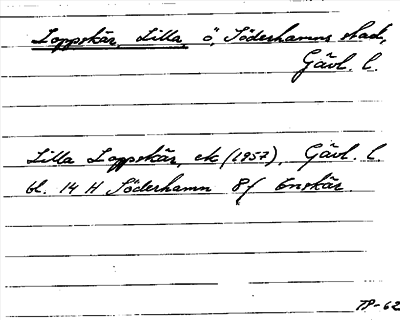 Loppskär, Lilla, ö, Söderhamns stad,
Gävl. l.
Lilla Loppskär, ek (1957), Gävl. l
bl. 14 H Söderhamn 8f Enskär
TP-62